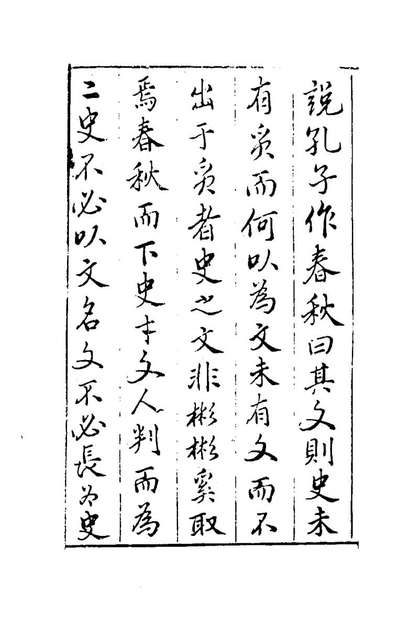 說孔子作春秋曰其文則史未
有質而何以為文未有文而不
出于質者史之文非彬彬奚取
焉春秋而下史才文人判而為
二史不必以文名文不必長史